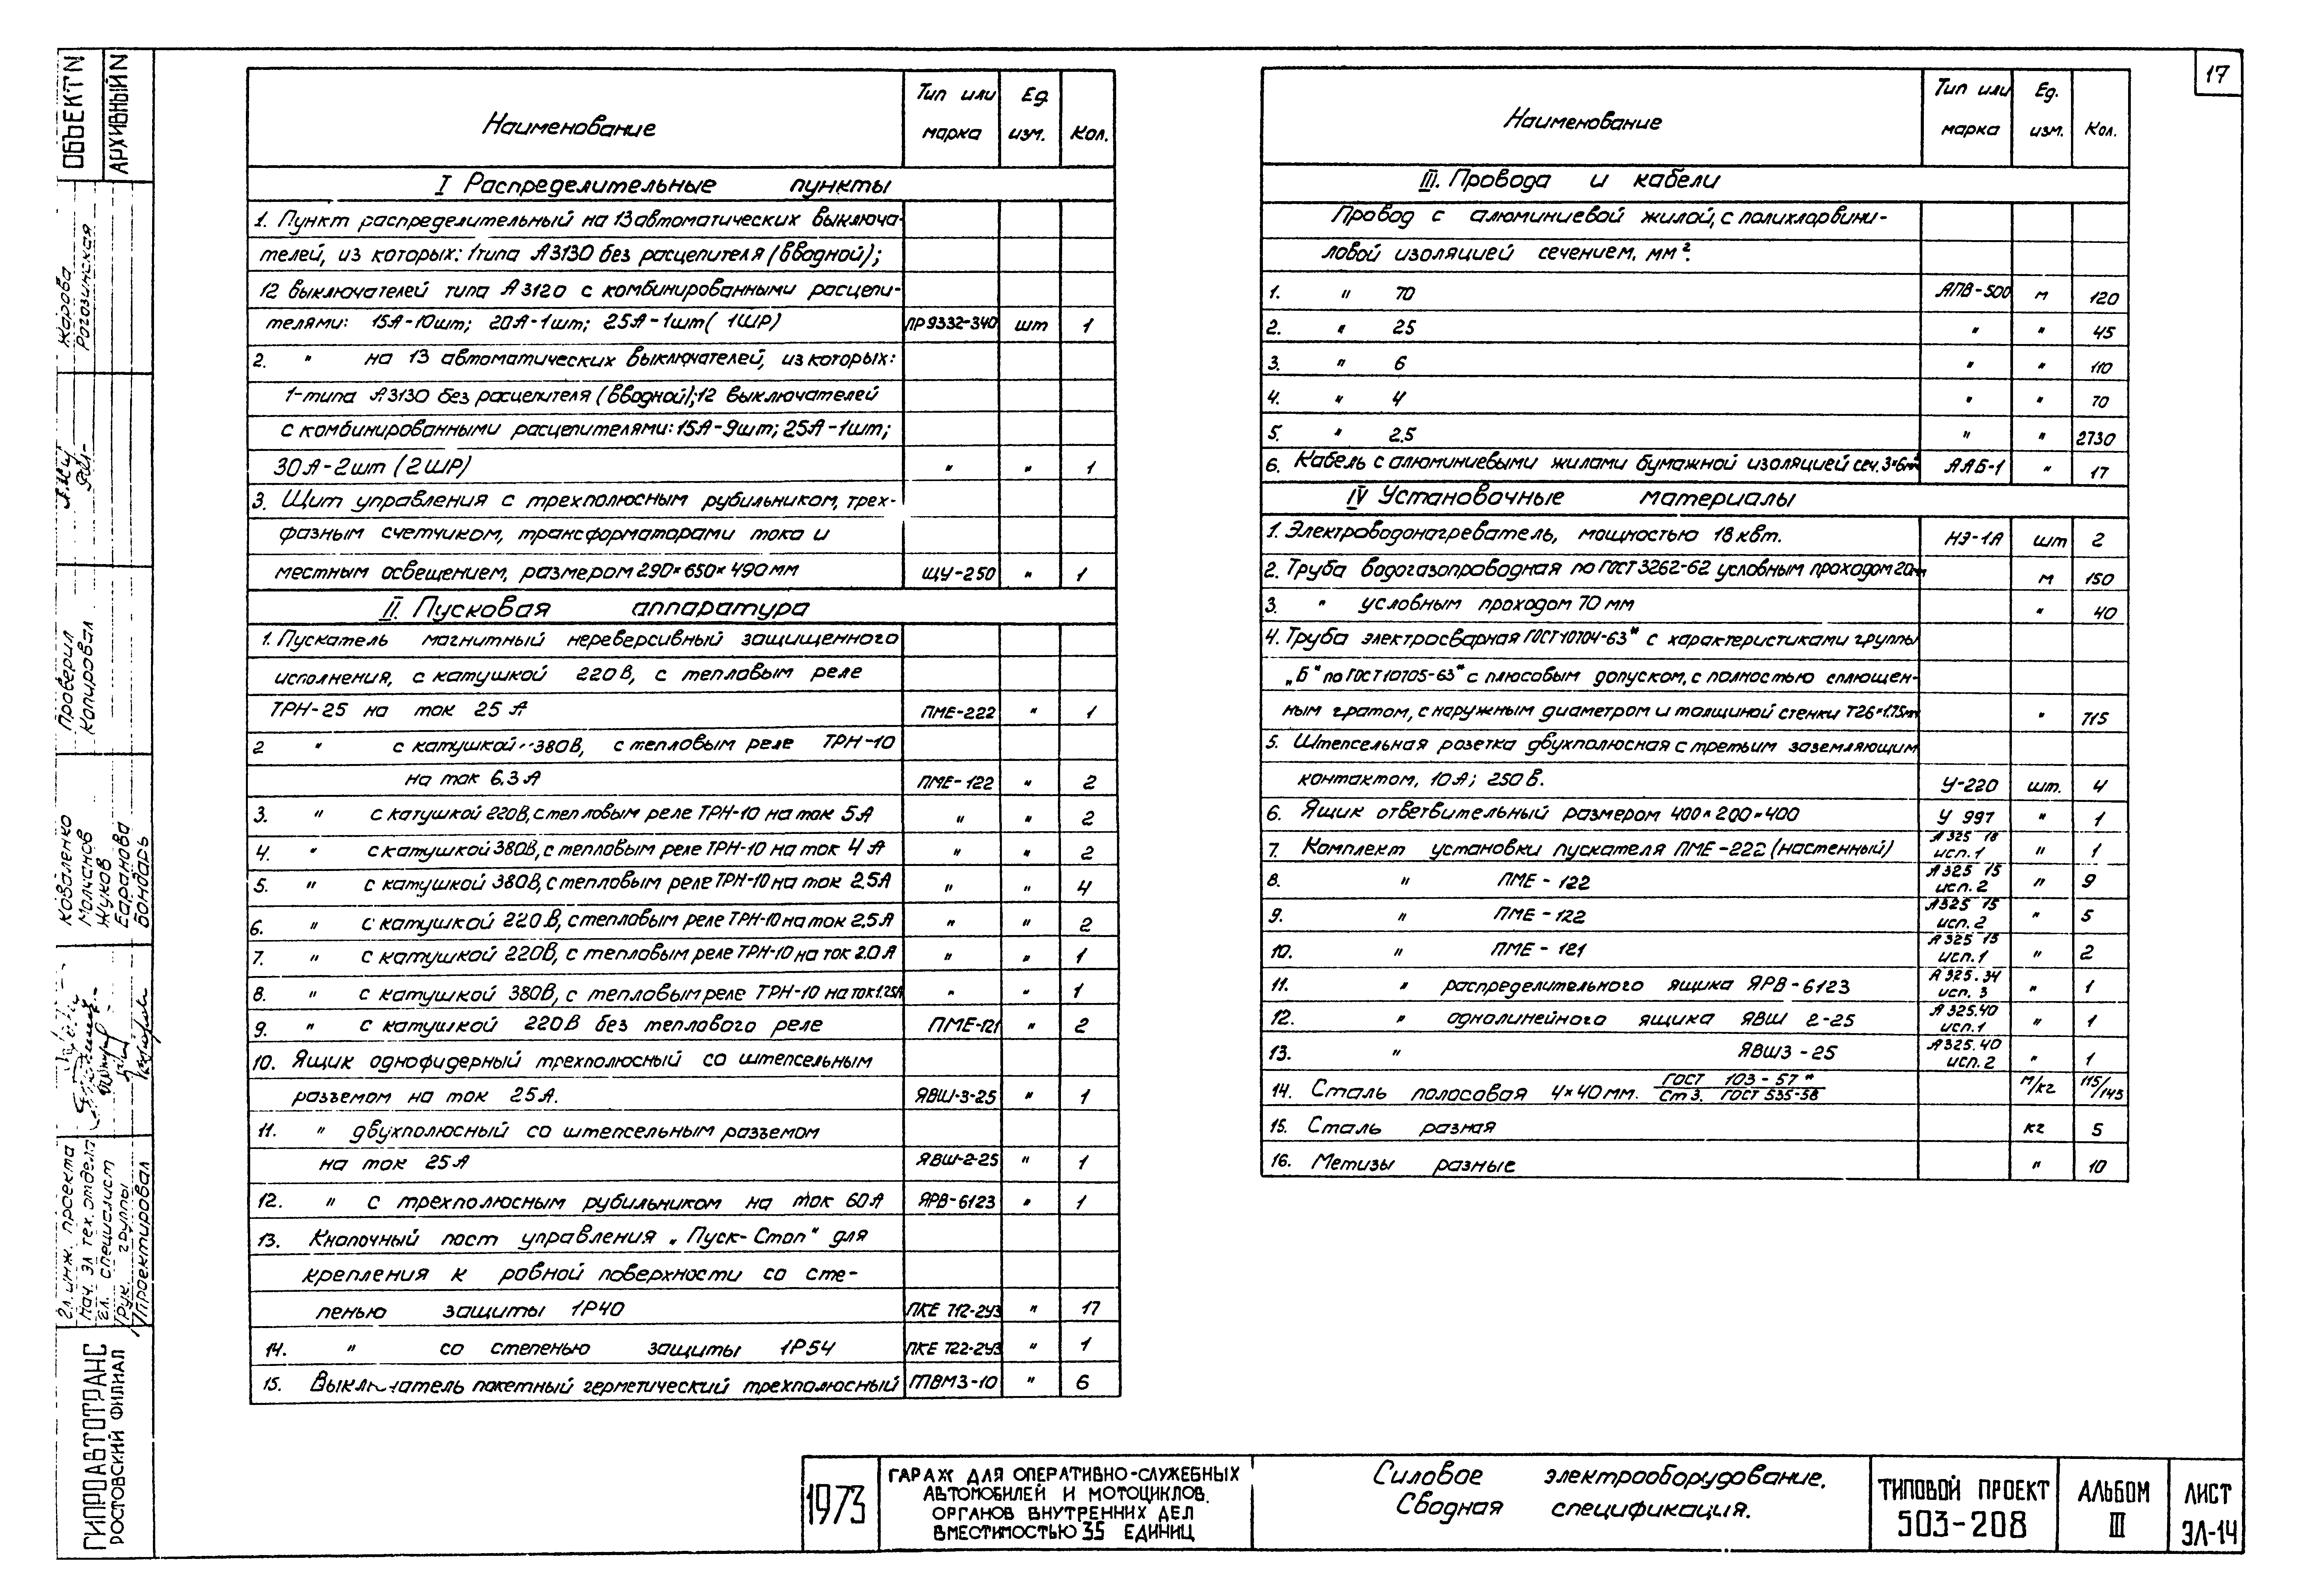 17
ОБЪЕКТ N
АРХИВНЫЙ N
Жарова
Рогозинская
Проверил
Копировал
Коваленко
Молчанов
Жуков
Баранова
Бондарь
Гл. инж. проекта
Нач. эл тех. отдела
Гл. специалист
Рук. группы
Проектировал
ГИПРОАВТОТРАНС
РОСТОВСКИЙ ФИЛИАЛ
Наименование | Тип или марка | Ед. изм. | Кол.
I Распределительные пункты
1. Пункт распределительный на 13 автоматических выключа-
телей, из которых: 1 типа А3130 без расцепителя (вводной);
12 выключателей типа А3120 с комбинированными расцепи-
телями: 15А-10шт; 20А-1шт; 25А-1шт (1ШР) | ПР9332-340 | шт | 1
2. " на 13 автоматических выключателей, из которых:
1-типа А3130 без расцепителя (вводной); 12 выключателей
с комбинированными расцепителями: 15А-9шт; 25А-1шт;
30А-2шт (2ШР) | " | " | 1
3. Щит управления с трехполюсным рубильником, трех-
фазным счетчиком, трансформаторами тока и
местным освещением, размером 290×650×490мм | ЩУ-250 | " | 1
II. Пусковая аппаратура
1. Пускатель магнитный нереверсивный защищенного
исполнения, с катушкой 220В, с тепловым реле
ТРН-25 на ток 25А | ПМЕ-222 | " | 1
2 " с катушкой 380В, с тепловым реле ТРН-10
на ток 6.3А | ПМЕ-122 | " | 2
3. " с катушкой 220В, с тепловым реле ТРН-10 на ток 5А | " | " | 2
4. " с катушкой 380В, с тепловым реле ТРН-10 на ток 4А | " | " | 2
5. " с катушкой 380В, с тепловым реле ТРН-10 на ток 2.5А | " | " | 4
6. " с катушкой 220В, с тепловым реле ТРН-10 на ток 2.5А | " | " | 2
7. " с катушкой 220В, с тепловым реле ТРН-10 на ток 2.0А | " | " | 1
8. " с катушкой 380В, с тепловым реле ТРН-10 на ток 1.25А | " | " | 1
9. " с катушкой 220В без теплового реле | ПМЕ-121 | " | 2
10. Ящик однофидерный трехполюсный со штепсельным
разъемом на ток 25А. | ЯВШ-3-25 | " | 1
11. " двухполюсный со штепсельным разъемом
на ток 25А | ЯВШ-2-25 | " | 1
12. " с трехполюсным рубильником на ток 60А | ЯРВ-6123 | " | 1
13. Кнопочный пост управления „Пуск-Стоп" для
крепления к ровной поверхности со сте-
пенью защиты 1Р40 | ПКЕ 712-2У3 | " | 17
14. " со степенью защиты 1Р54 | ПКЕ 722-2У3 | " | 1
15. Выключатель пакетный герметический трехполюсный | ТВМ3-10 | " | 6
Наименование | Тип или марка | Ед. изм. | Кол.
III. Провода и кабели
Провод с алюминиевой жилой, с полихлорвини-
ловой изоляцией сечением, мм².
1. " 70 | АПВ-500 | м | 120
2. " 25 | " | " | 45
3. " 6 | " | " | 110
4. " 4 | " | " | 70
5. " 2.5 | " | " | 2730
6. Кабель с алюминиевыми жилами бумажной изоляцией сеч. 3×6мм² | ААБ-1 | " | 17
IV Установочные материалы
1. Электроводонагреватель, мощностью 18 квт. | НЭ-1А | шт | 2
2. Труба водогазопроводная по ГОСТ 3262-62 условным проходом 20мм | м | 150
3. " условным проходом 70 мм | " | 40
4. Труба электросварная ГОСТ 10704-63* с характеристиками группы
„Б" по ГОСТ 10705-63* с плюсовым допуском, с полностью сплющен-
ным гратом, с наружным диаметром и толщиной стенки Т26×1.75мм | " | 715
5. Штепсельная розетка двухполюсная с третьим заземляющим
контактом, 10А; 250В. | У-220 | шт. | 4
6. Ящик ответвительный размером 400×200×400 | У 997 | " | 1
7. Комплект установки пускателя ПМЕ-222 (настенный) | А325 18 исп. 1 | " | 1
8. " ПМЕ-122 | А325 15 исп. 2 | " | 9
9. " ПМЕ-122 | А325 15 исп. 2 | " | 5
10. " ПМЕ-121 | А325 15 исп. 1 | " | 2
11. " распределительного ящика ЯРВ-6123 | А325.34 исп. 3 | " | 1
12. " однолинейного ящика ЯВШ 2-25 | А325.40 исп. 1 | " | 1
13. " ЯВШ3-25 | А325.40 исп. 2 | " | 1
14. Сталь полосовая 4×40мм. ГОСТ 103-57* / Ст 3. ГОСТ 535-58 | м/кг | 115/145
15. Сталь разная | кг | 5
16. Метизы разные | " | 10
1973
ГАРАЖ ДЛЯ ОПЕРАТИВНО-СЛУЖЕБНЫХ
АВТОМОБИЛЕЙ И МОТОЦИКЛОВ.
ОРГАНОВ ВНУТРЕННИХ ДЕЛ
ВМЕСТИМОСТЬЮ 35 ЕДИНИЦ
Силовое электрооборудование.
Сводная спецификация.
ТИПОВОЙ ПРОЕКТ
503-208
АЛЬБОМ
III
ЛИСТ
ЭЛ-14